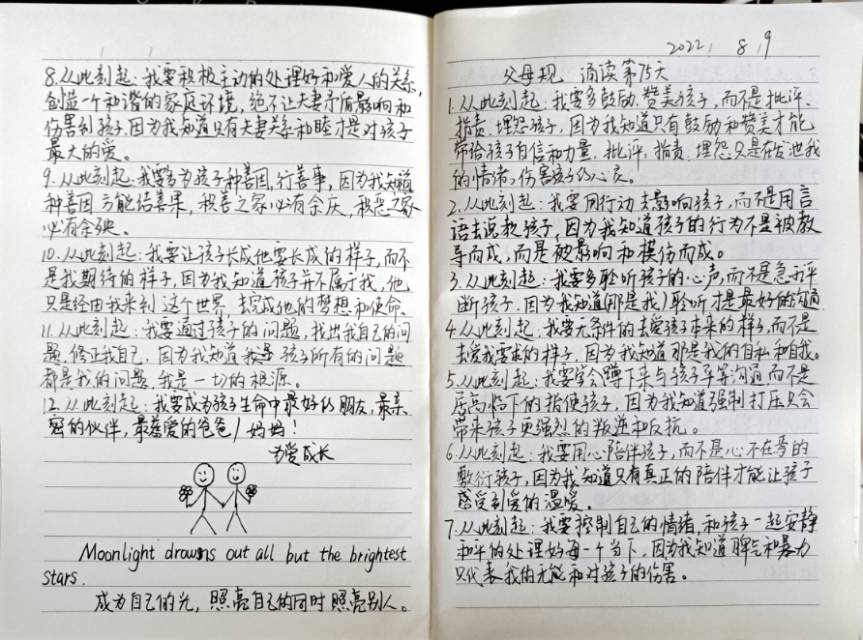 2022. 8.9
父母规 诵读第75天
1.从此刻起:我要多鼓励.赞美孩子,而不是批评、
指责.埋怨孩子,因为我知道只有鼓励和赞美才能
带给孩子自信和力量,批评,指责.埋怨只是在发泄我
的情绪,伤害孩子的心灵。
2.从此刻起:我要用行动去影响孩子,而不是用言
语去说教孩子,因为我知道孩子的行为不是被教
导而成,而是被影响和模仿而成。
3.从此刻起:我要多聆听孩子的心声,而不是急于评
断孩子.因为我知道(那是我)聆听才是最好的沟通
4.从此刻起:我要无条件的去爱孩子本来的样子,而不是
去爱我要求的样子,因为我知道那是我的自私和自我。
5.从此刻起:我要学会蹲下来与孩子平等沟通,而不是
居高临下的指使孩子,因为我知道强制打压只会
带来孩子更强烈的叛逆和反抗。
6.从此刻起:我要用心陪伴孩子,而不是心不在焉的
敷衍孩子,因为我知道只有真正的陪伴才能让孩子
感受到爱的温暖。
7.从此刻起:我要控制自己的情绪.和孩子一起安静
和平的处理好每一个当下,因为我知道脾气和暴力
只代表我的无能和对孩子的伤害。
8.从此刻起:我要积极主动的处理好和爱人的关系,
创造一个和谐的家庭环境,绝不让夫妻矛盾影响和
伤害到孩子.因为我知道只有夫妻关系和睦才是对孩子
最大的爱。
9.从此刻起:我要多为孩子种善因,行善事,因为我知道
种善因方能结善果,积善之家必有余庆,积恶之家
必有余殃。
10.从此刻起:我要让孩子长成他要长成的样子,而不
是我期待的样子,因为我知道孩子并不属于我,他
只是经由我来到这个世界,去完成他的梦想和使命.
11.从此刻起:我要通过孩子的问题,找出我自己的问
题.修正我自己,因为我知道我是孩子所有的问题
都是我的问题.我是一切的根源。
12.从此刻起:我要成为孩子生命中最好的朋友,最亲
密的伙伴,最慈爱的爸爸/妈妈!
为爱成长
Moonlight drowns out all but the brightest
stars.
成为自己的光,照亮自己的同时照亮别人。